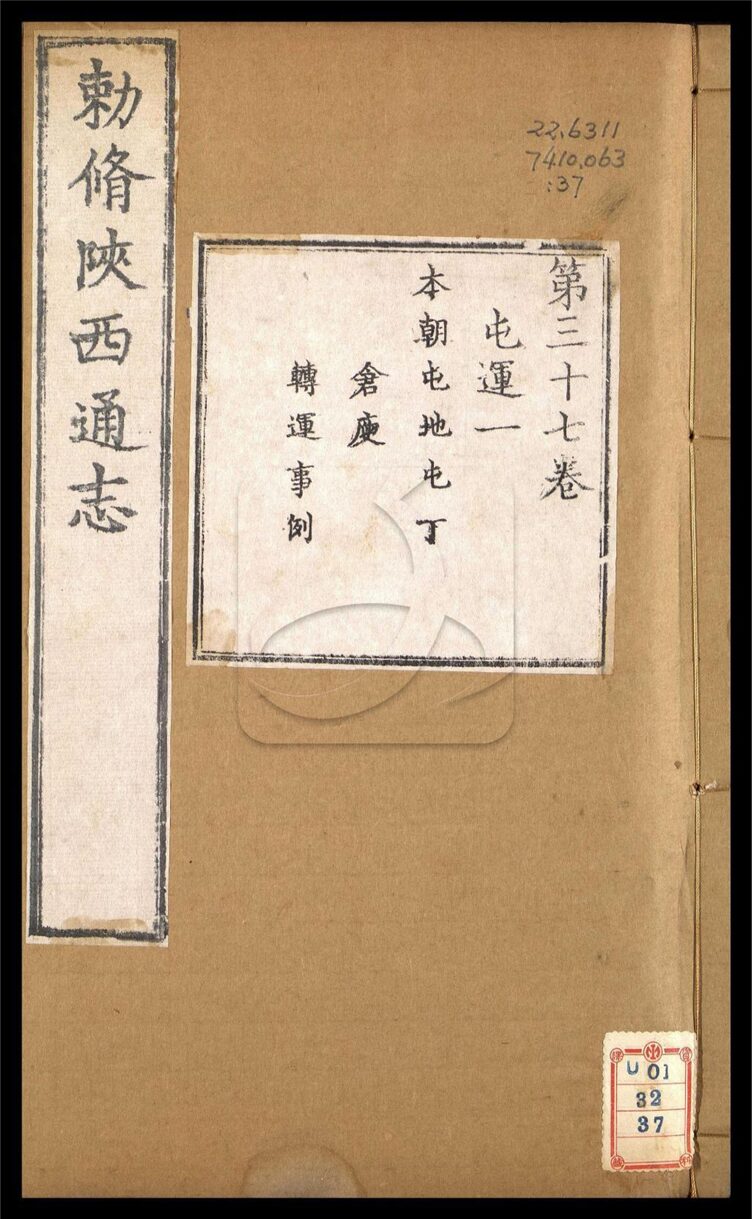 勅脩陝西通志
22.6311
7410.063
:37
第三十七卷
屯運一
本朝屯地屯丁
倉庾
轉運事例
U 01
32
37